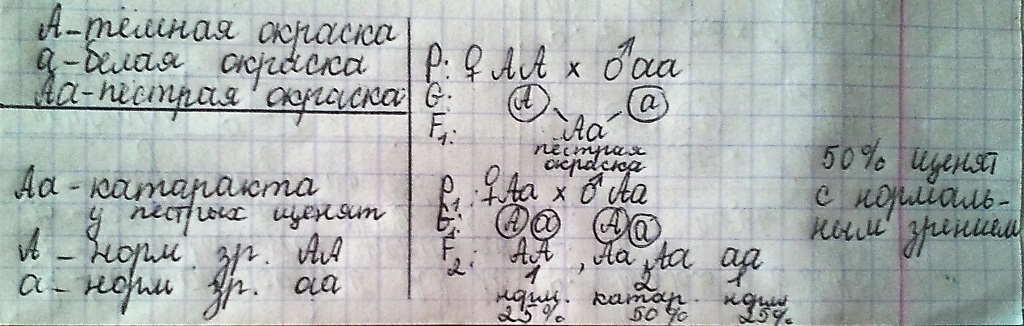 А-тёмная окраска
а-белая окраска
Аа-пёстрая окраска
Р: ♀ АА × ♂ аа
G: А а
F₁: Аа
пёстрая
окраска
Аа - катаракта
у пёстрых щенят
А - норм. зр. АА
а - норм зр. аа
Р₁: ♀ Аа × ♂ Аа
G₁: А а А а
F₂: АА, Аа, Аа аа
1 2 1
норм. катар. норм
25% 50% 25%
50% щенят
с нормаль-
ным зрением